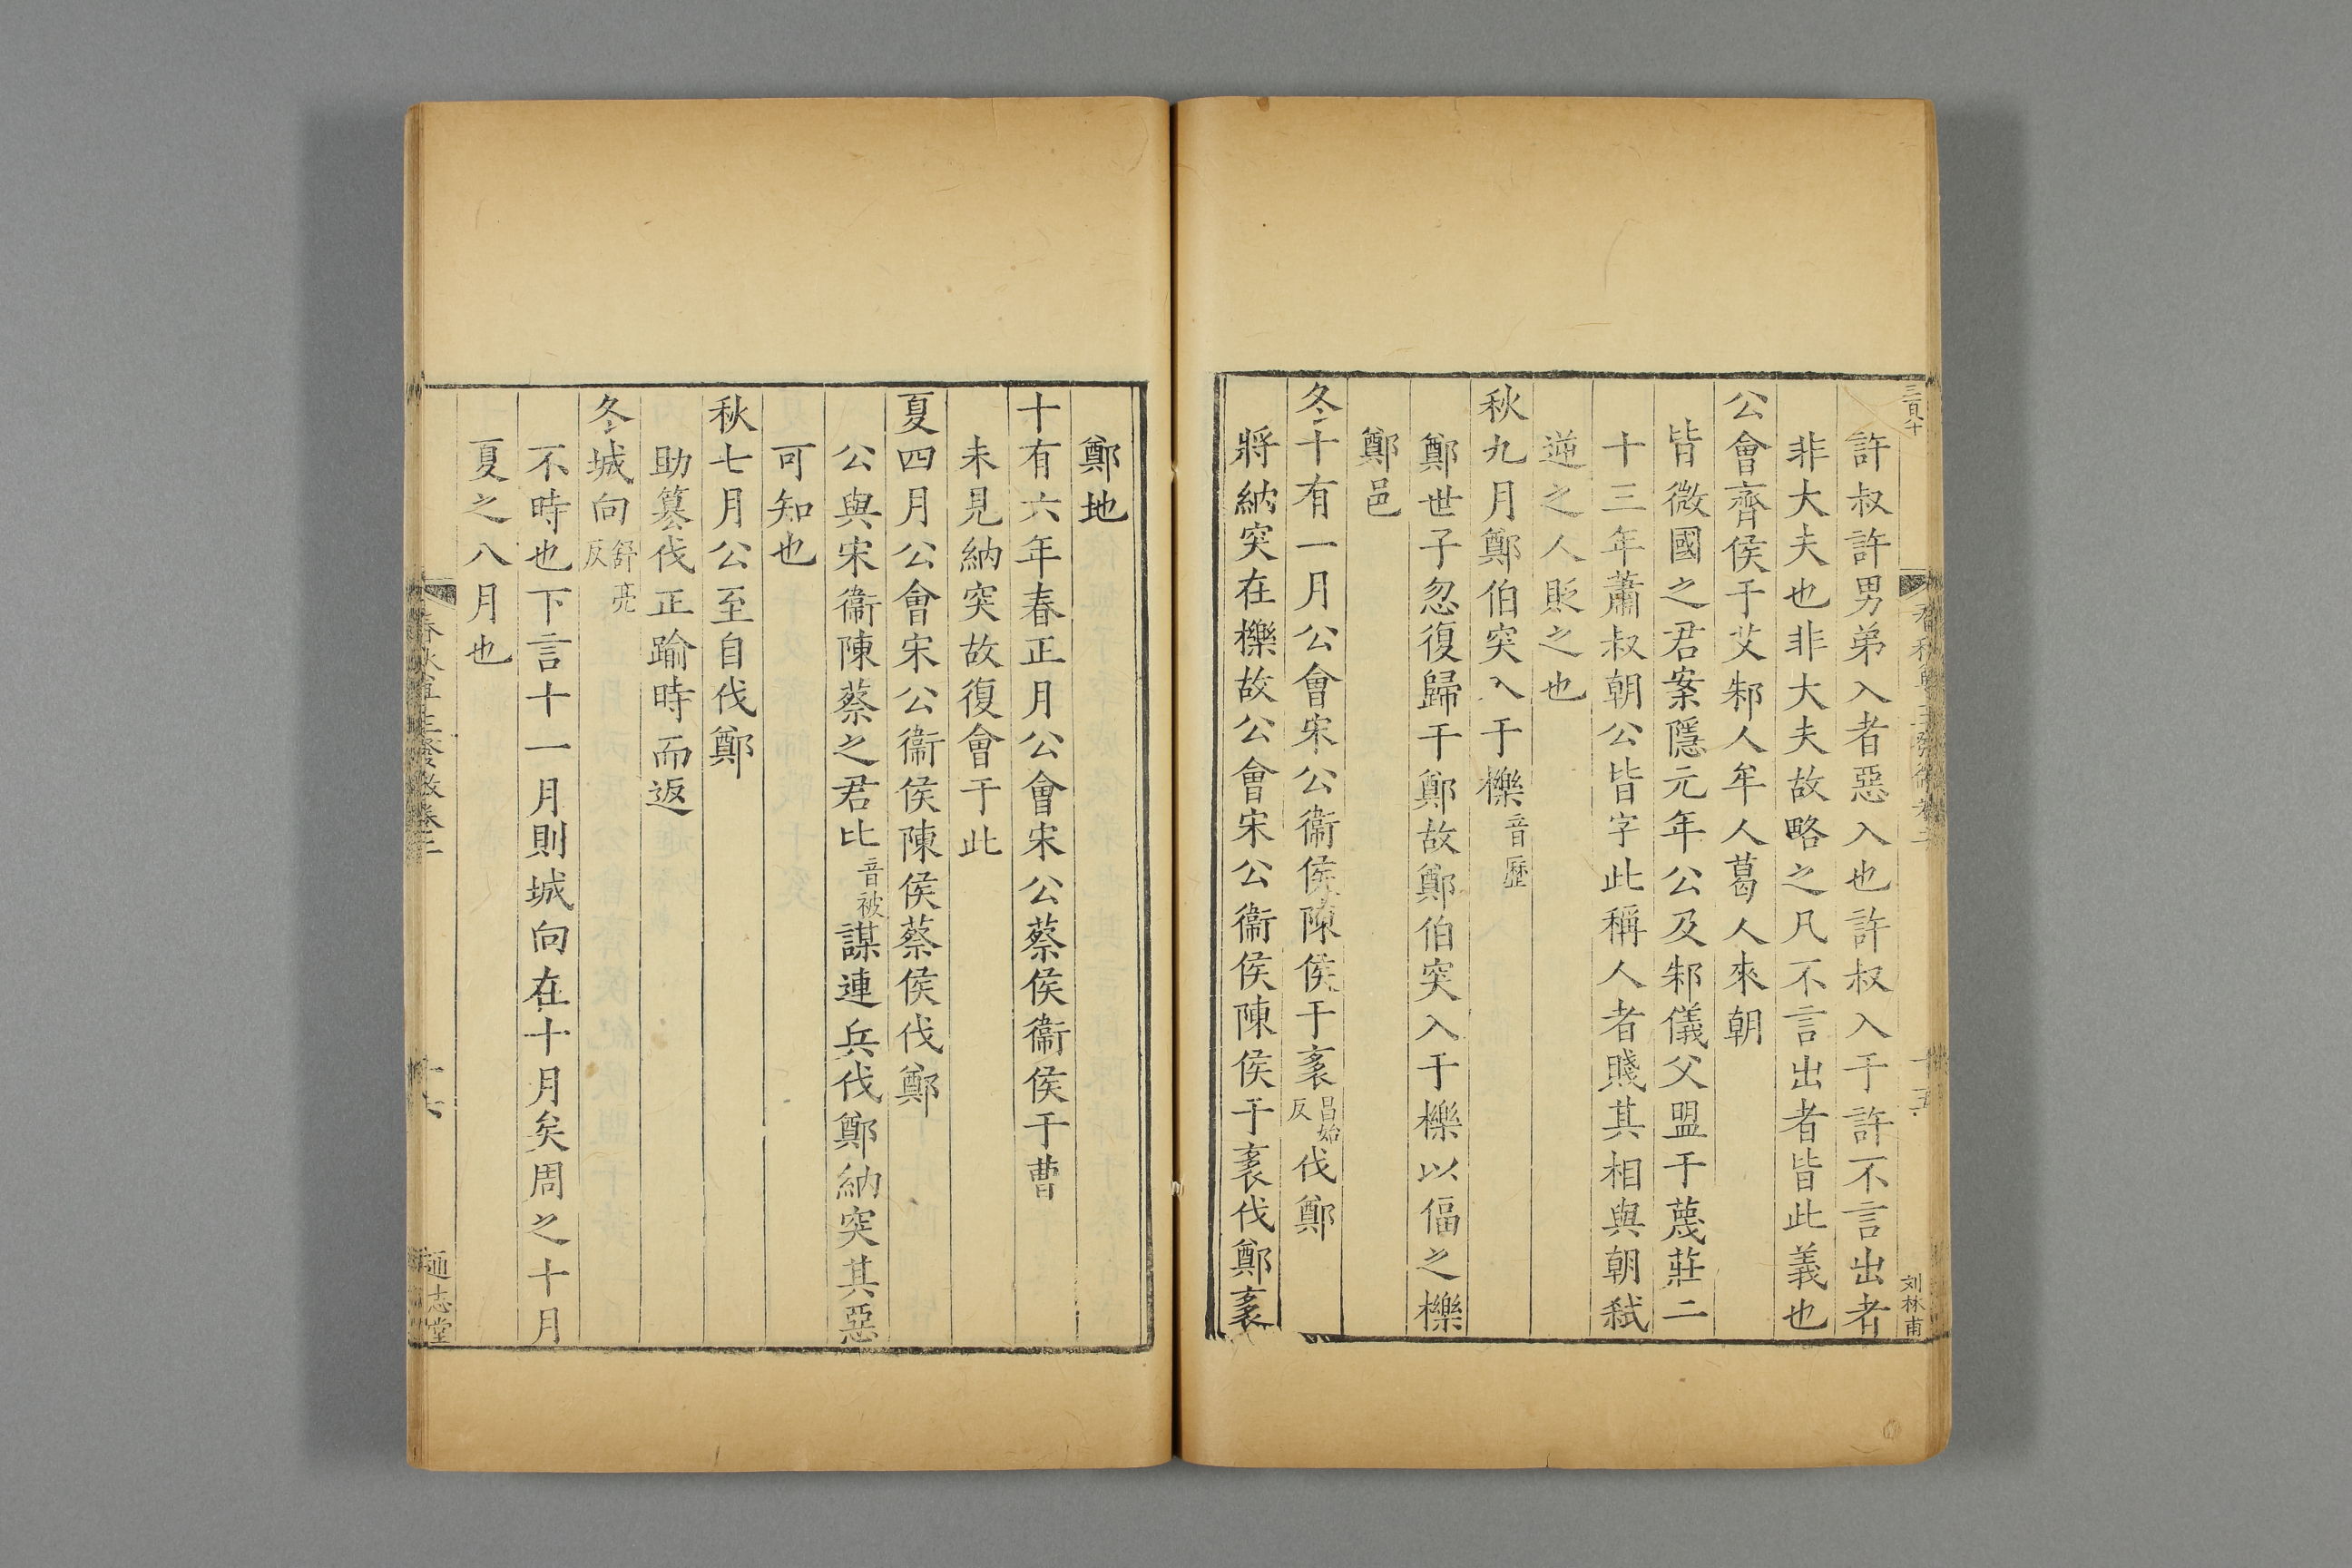 三百八十
許叔許男弟入者惡入也許叔入于許不言出者
非大夫也非大夫故略之凡不言出者皆此義也
公會齊侯于艾邾人牟人葛人來朝
皆微國之君案隱元年公及邾儀父盟于蔑莊二
十三年蕭叔朝公皆字此稱人者賤其相與朝弒
逆之人貶之也
秋九月鄭伯突入于櫟音歷
鄭世子忽復歸于鄭故鄭伯突入于櫟以偪之櫟
鄭邑
冬十有一月公會宋公衞侯陳侯于袲昌始反伐鄭
將納突在櫟故公會宋公衞侯陳侯于袲伐鄭袲
刘林甫
鄭地
十有六年春正月公會宋公蔡侯衞侯于曹
未見納突故復會于此
夏四月公會宋公衞侯陳侯蔡侯伐鄭
公與宋衞陳蔡之君比音被謀連兵伐鄭納突其惡
可知也
秋七月公至自伐鄭
助篡伐正踰時而返
冬城向舒亮反
不時也下言十一月則城向在十月矣周之十月
夏之八月也
春秋尊王發微卷二
十六
通志堂